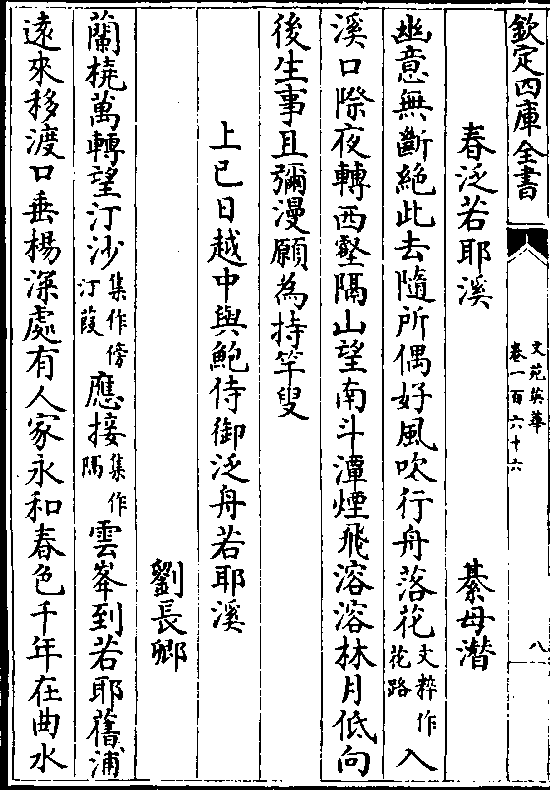 欽定四庫全書
文苑英華
卷一百六十六
八
春泛若耶溪
綦母潛
幽意無斷絶此去隨所偶好風吹行舟落花文粹作花路入
溪口際夜轉西壑隔山望南斗潭煙飛溶溶林月低向
後生事且彌漫願為持竿叟
上巳日越中與鮑侍御泛舟若耶溪
劉長卿
蘭橈萬轉望汀沙集作傍汀葭應接集作隔雲峯到若耶舊浦
遠來移渡口垂楊深處有人家永和春色千年在曲水